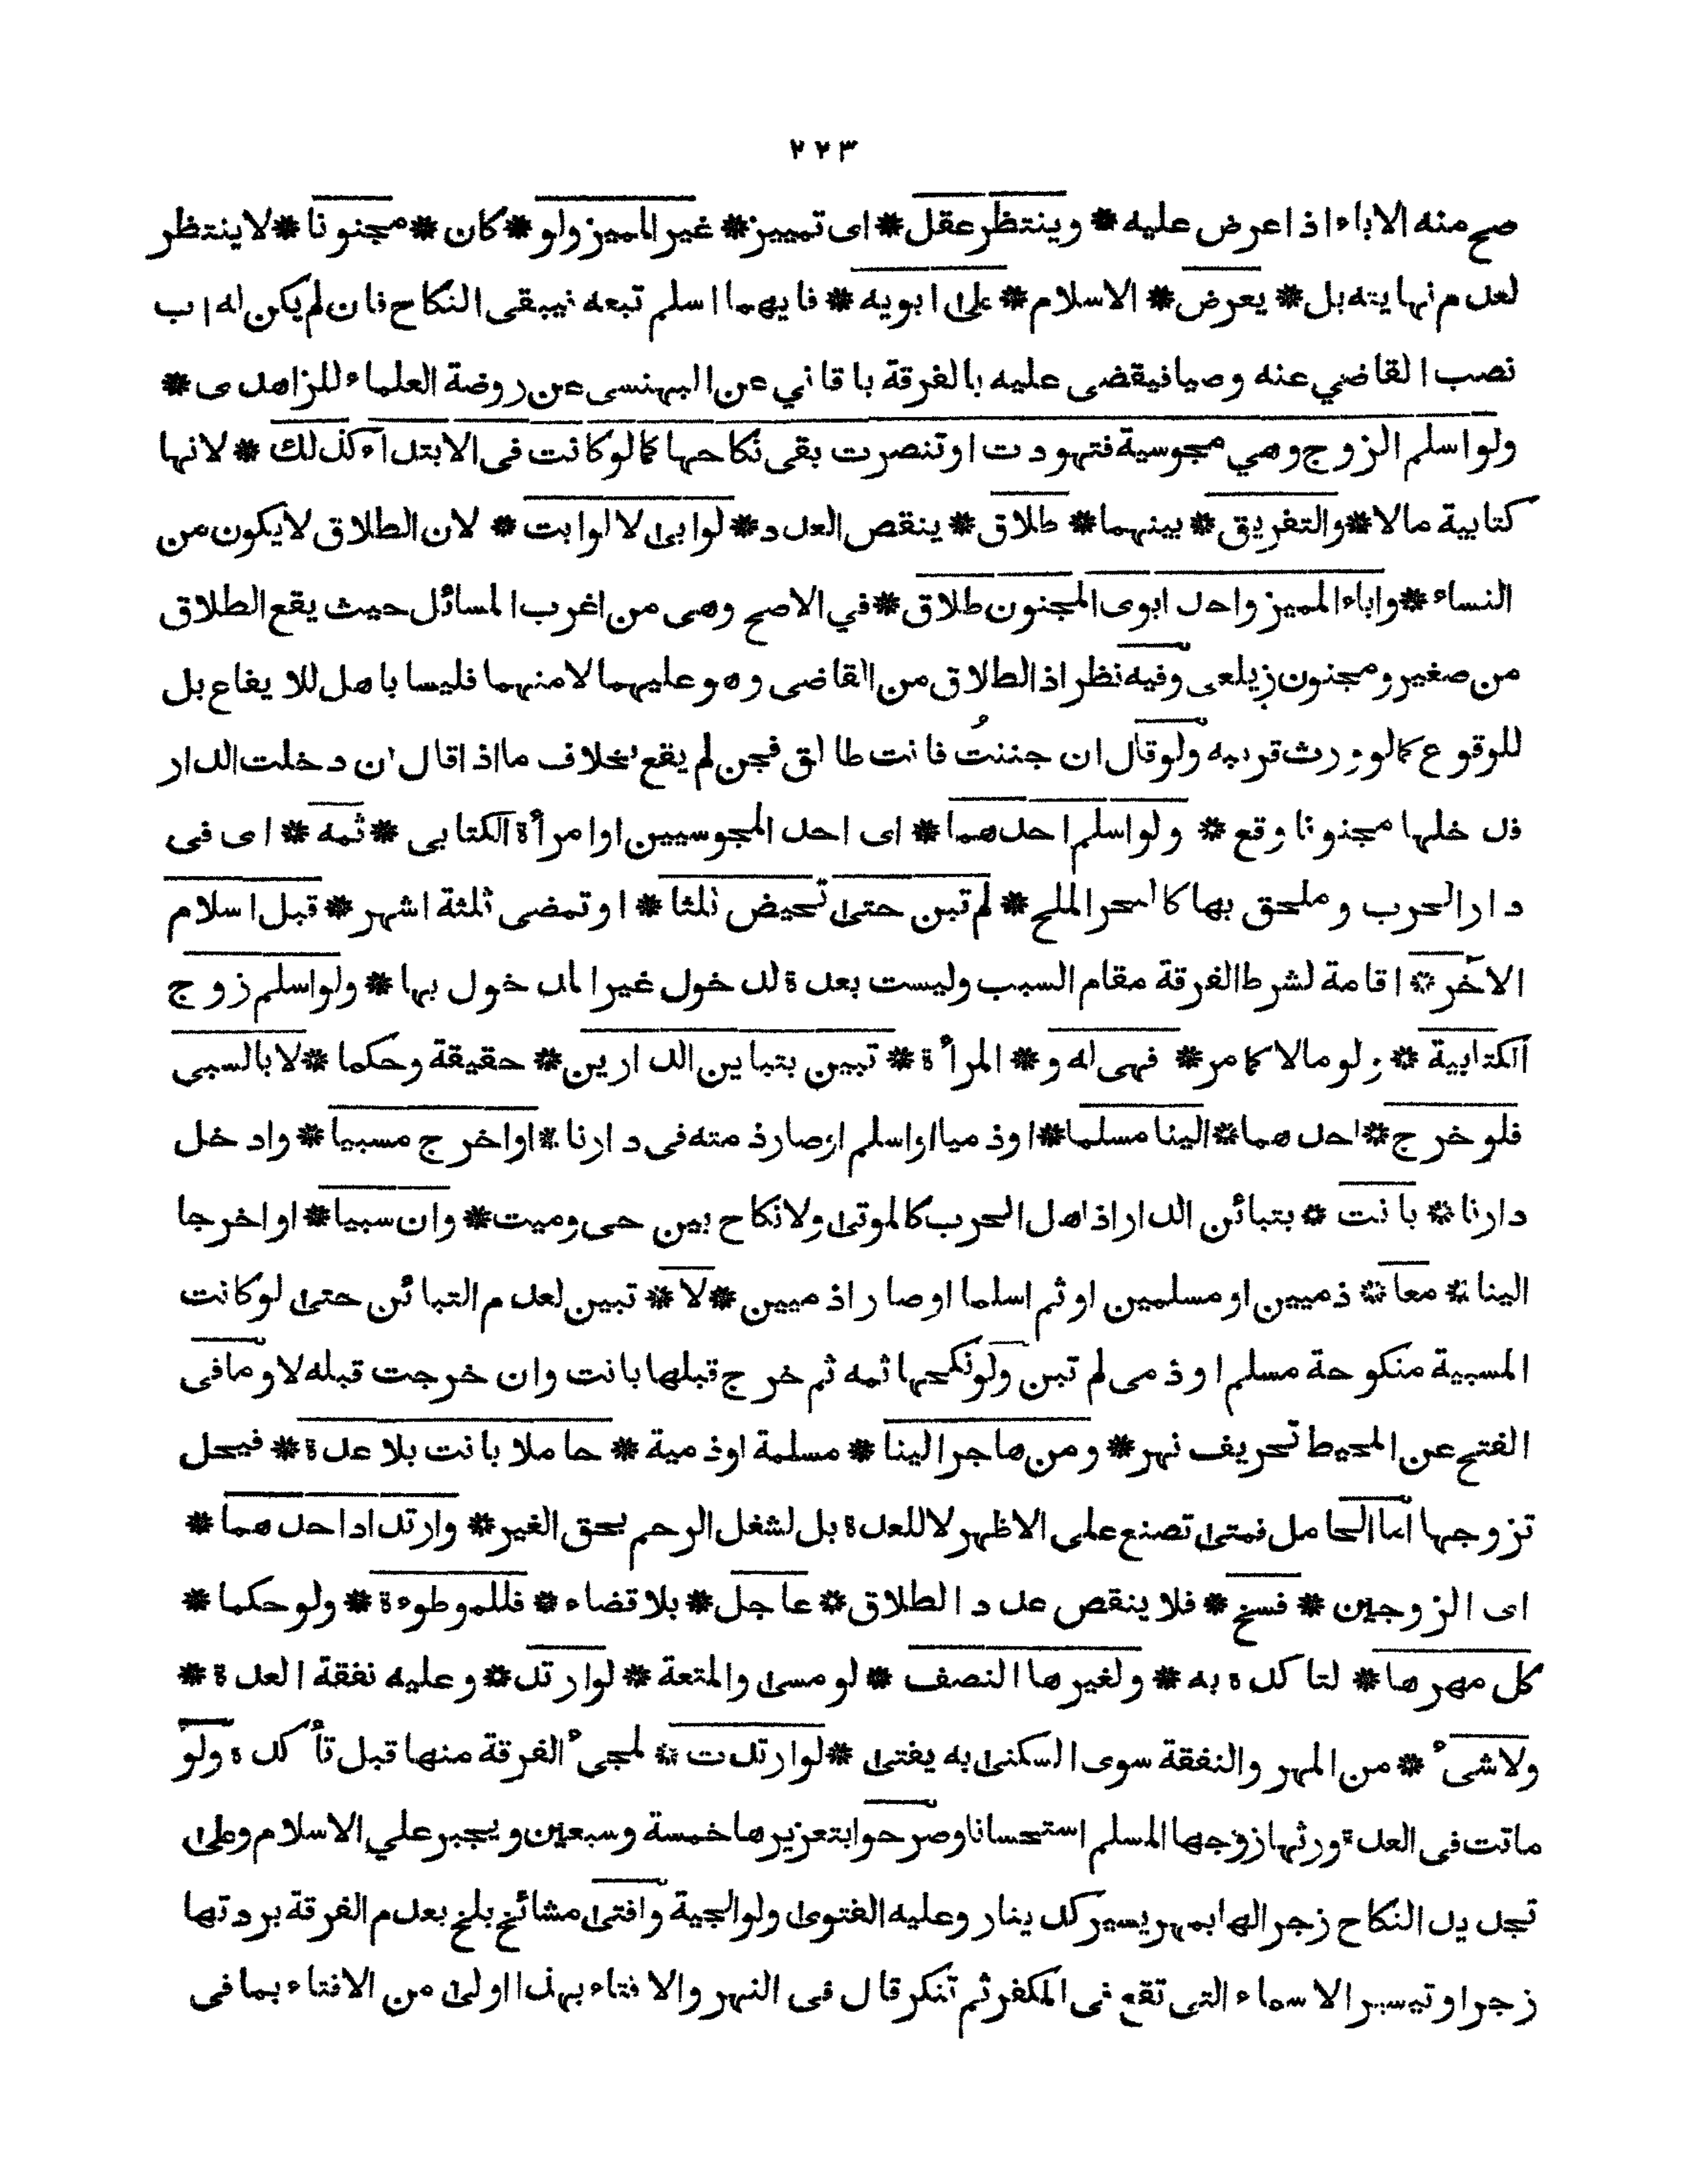 ٢٢٣
صح منه الاباء اذا عرض عليه * وينتظر عقل * اى تمييز * غير المميز ولو * كان * مجنونا * لا ينتظر
لعدم نهايته بل * يعرض * الاسلام * على ابويه * فايهما اسلم تبعه فيبقى النكاح فان لم يكن له اب
نصب القاضي عنه وصيا فيقضى عليه بالفرقة باقاني عن البهنسى عن روضة العلماء للزاهدى *
ولو اسلم الزوج وهي مجوسية فتهودت او تنصرت بقى نكاحها كما لو كانت فى الابتداء كذلك * لانها
كتابية مالا * والتفريق * بينهما * طلاق * ينقص العدد * لو ابى لا لو ابت * لان الطلاق لا يكون من
النساء * واباء المميز واحد ابوى المجنون طلاق * في الاصح وهى من اغرب المسائل حيث يقع الطلاق
من صغير ومجنون زيلعى وفيه نظر اذ الطلاق من القاضى وهو عليهما لا منهما فليسا باهل للايقاع بل
للوقوع كما لو ورث قريبه ولو قال ان جننتُ فانت طالق فجن لم يقع بخلاف ما اذا قال ان دخلت الدار
فدخلها مجنونا وقع * ولو اسلم احدهما * اى احد المجوسيين او امرأة الكتابى * ثمه * اى فى
دار الحرب وملحق بها كالبحر الملح * لم تبن حتى تحيض ثلثا * او تمضى ثلثة اشهر * قبل اسلام
الآخر * اقامة لشرط الفرقة مقام السبب وليست بعدة لدخول غير المدخول بها * ولو اسلم زوج
الكتابية * ولو مالا كما مر * فهى له و * المرأة * تبين بتباين الدارين * حقيقة وحكما * لا بالسبى
فلو خرج * احدهما * الينا مسلما * او ذميا او اسلم او صار ذمته فى دارنا * او اخرج مسبيا * وادخل
دارنا * بانت * بتبائن الدار اذ اهل الحرب كالموتى ولا نكاح بين حى وميت * وان سبيا * او اخرجا
الينا * معا * ذميين او مسلمين او ثم اسلما او صارا ذميين * لا * تبين لعدم التبائن حتى لو كانت
المسبية منكوحة مسلم او ذمى لم تبن ولو نكحها ثمه ثم خرج قبلها بانت وان خرجت قبله لا وما فى
الفتح عن المحيط تحريف نهر * ومن هاجر الينا * مسلمة او ذمية * حاملا بانت بلا عدة * فيحل
تزوجها اما الحامل فمتى تصنع على الاظهر لا للعدة بل لشغل الرحم بحق الغير * وارتداد احدهما *
اى الزوجين * فسخ * فلا ينقص عدد الطلاق * عاجل * بلا قضاء * فللموطوءة * ولو حكما *
كل مهرها * لتاكده به * ولغيرها النصف * لو مسى والمتعة * لو ارتد * وعليه نفقة العدة *
ولا شىء * من المهر والنفقة سوى السكنى به يفتى * لو ارتدت * لمجىء الفرقة منها قبل تأكده ولو
ماتت فى العدة ورثها زوجها المسلم استحسانا وصرحوا بتعزيرها خمسة وسبعين ويجبر علي الاسلام وعلى
تجديد النكاح زجرا لها بمهر يسير كدينار وعليه الفتوى ولوالجية وافتى مشائخ بلخ بعدم الفرقة بردتها
زجرا وتيسيرا لا سماء التى تقع فى المكفر ثم تنكر قال فى النهر والافتاء بهذا اولى من الافتاء بما فى